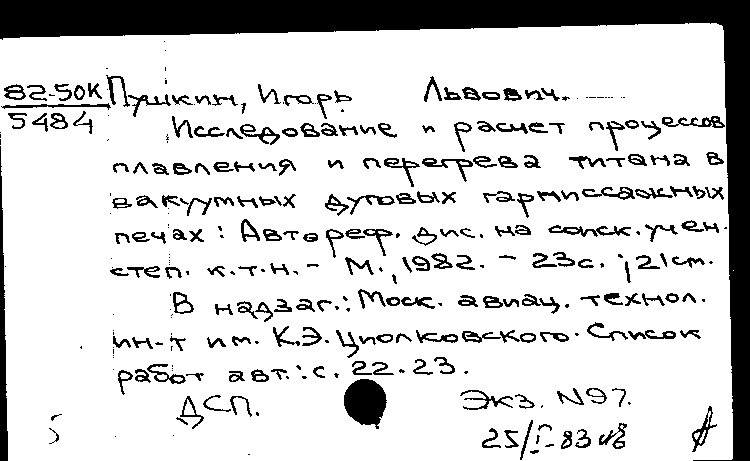 82-50К Пушкин, Игорь Львович.
5484 Исследование и расчет процессов
плавления и перегрева титана в
вакуумных дуговых гарниссажных
печах: Автореф. дис. на соиск. учен.
степ. к.т.н. - М., 1982. - 23с.; 21 см.
В надзаг.: Моск. авиац. технол.
ин-т им. К.Э. Циолковского. Список
работ авт.: с. 22-23.
ДСП. Экз. N97.
5 25/I-83